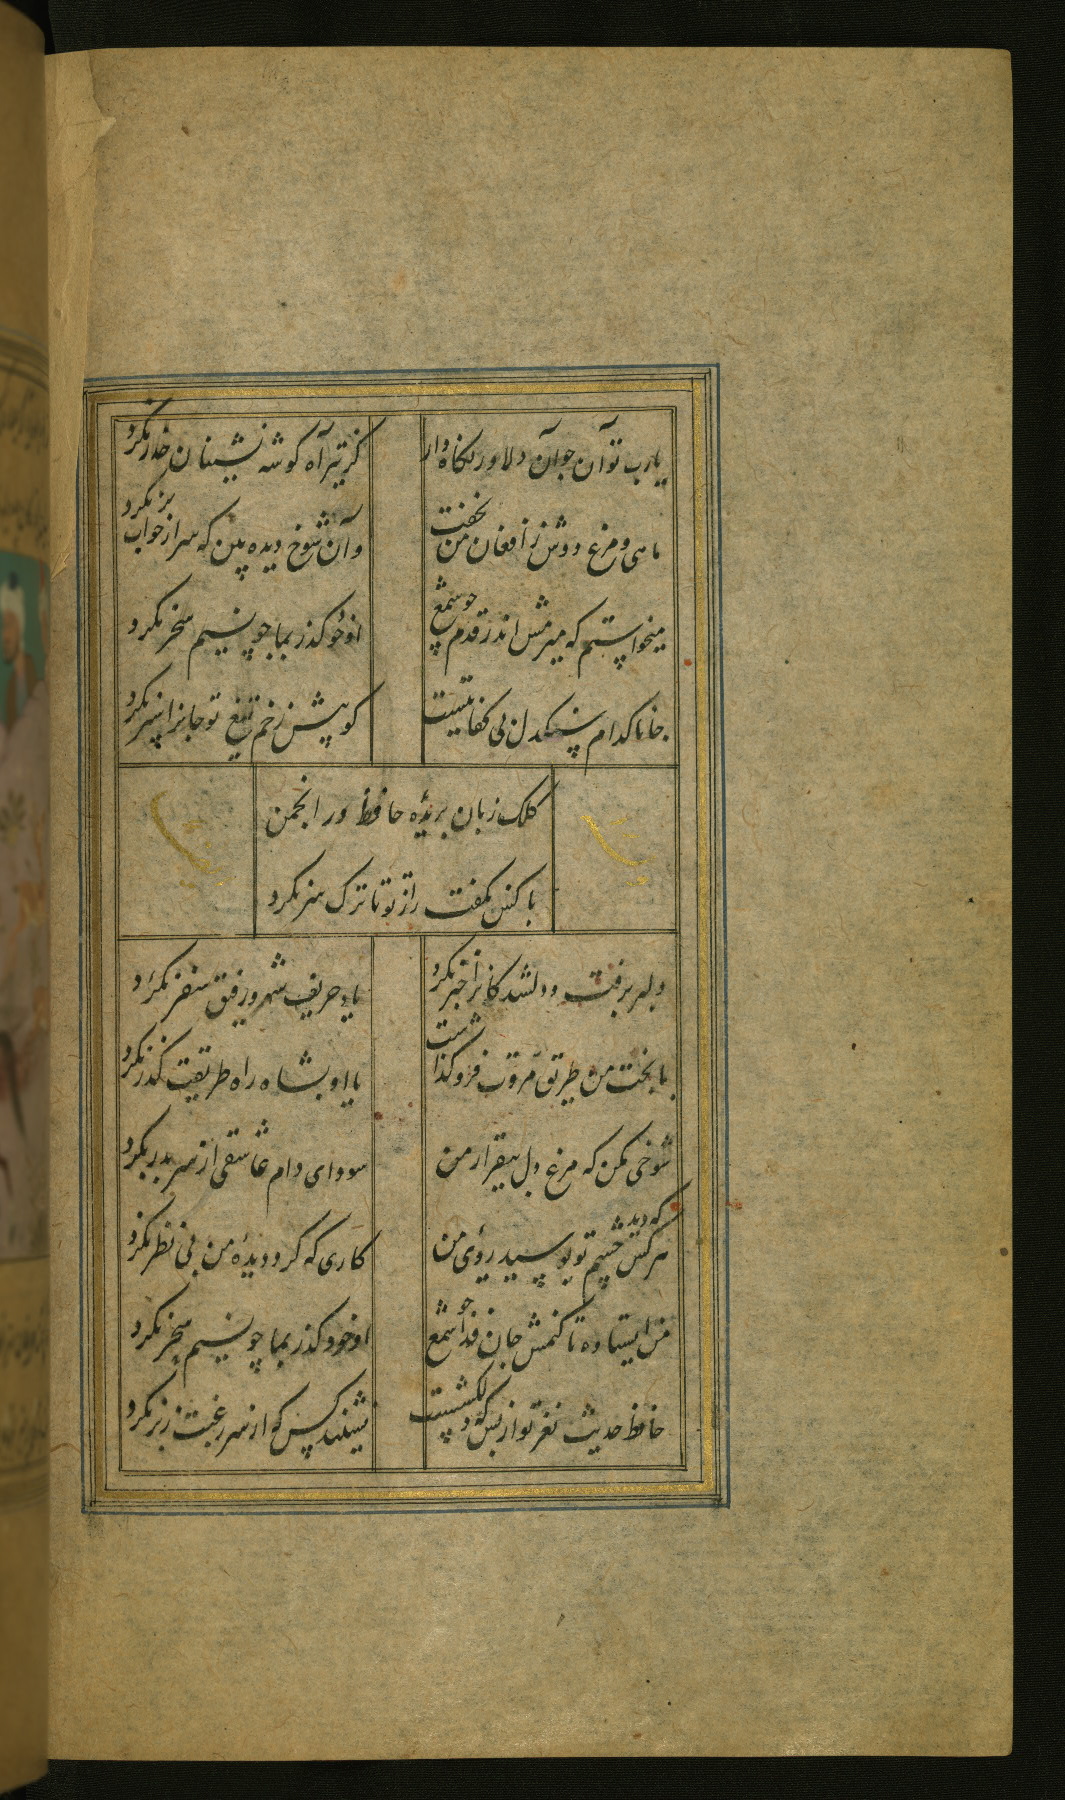 یارب تو آن جوان دلاور نگاه دار
کز تیر آه گوشه نشینان حذر نکرد
ماهی و مرغ دوش ز افغان من نخفت
وآن شوخ دیده بین که سر از خواب بر نکرد
میخواستم که میرمش اندر قدم چو شمع
او خود گذر بما چو نسیم سحر نکرد
جانا کدام سنکدل بی کفایتیست
کو پیش زخم تیغ تو جانرا سپر نکرد
کلک زبان بریدهٔ حافظ در انجمن
با کس نگفت راز تو تا ترک سر نکرد
دلبر برفت و دلشدکانرا خبر نکرد
یاد حریف شهر و رفیق سفر نکرد
یا بخت من طریق مروت فروگذاشت
یا او بشاه راه طریقت گذر نکرد
شوخی مکن که مرغ دل بیقرار من
سودای دام عاشقی از سر بدر نکرد
هرکس که دید چشم تو بوسید روی من
کاری که کرد دیدهٔ من بی نظر نکرد
من ایستاده تا کنمش جان فدا چو شمع
او خود گذر بما چو نسیم سحر نکرد
حافظ حدیث نغز تو از بس که دلکشست
نشنید کس که از سر رغبت ز بر نکرد